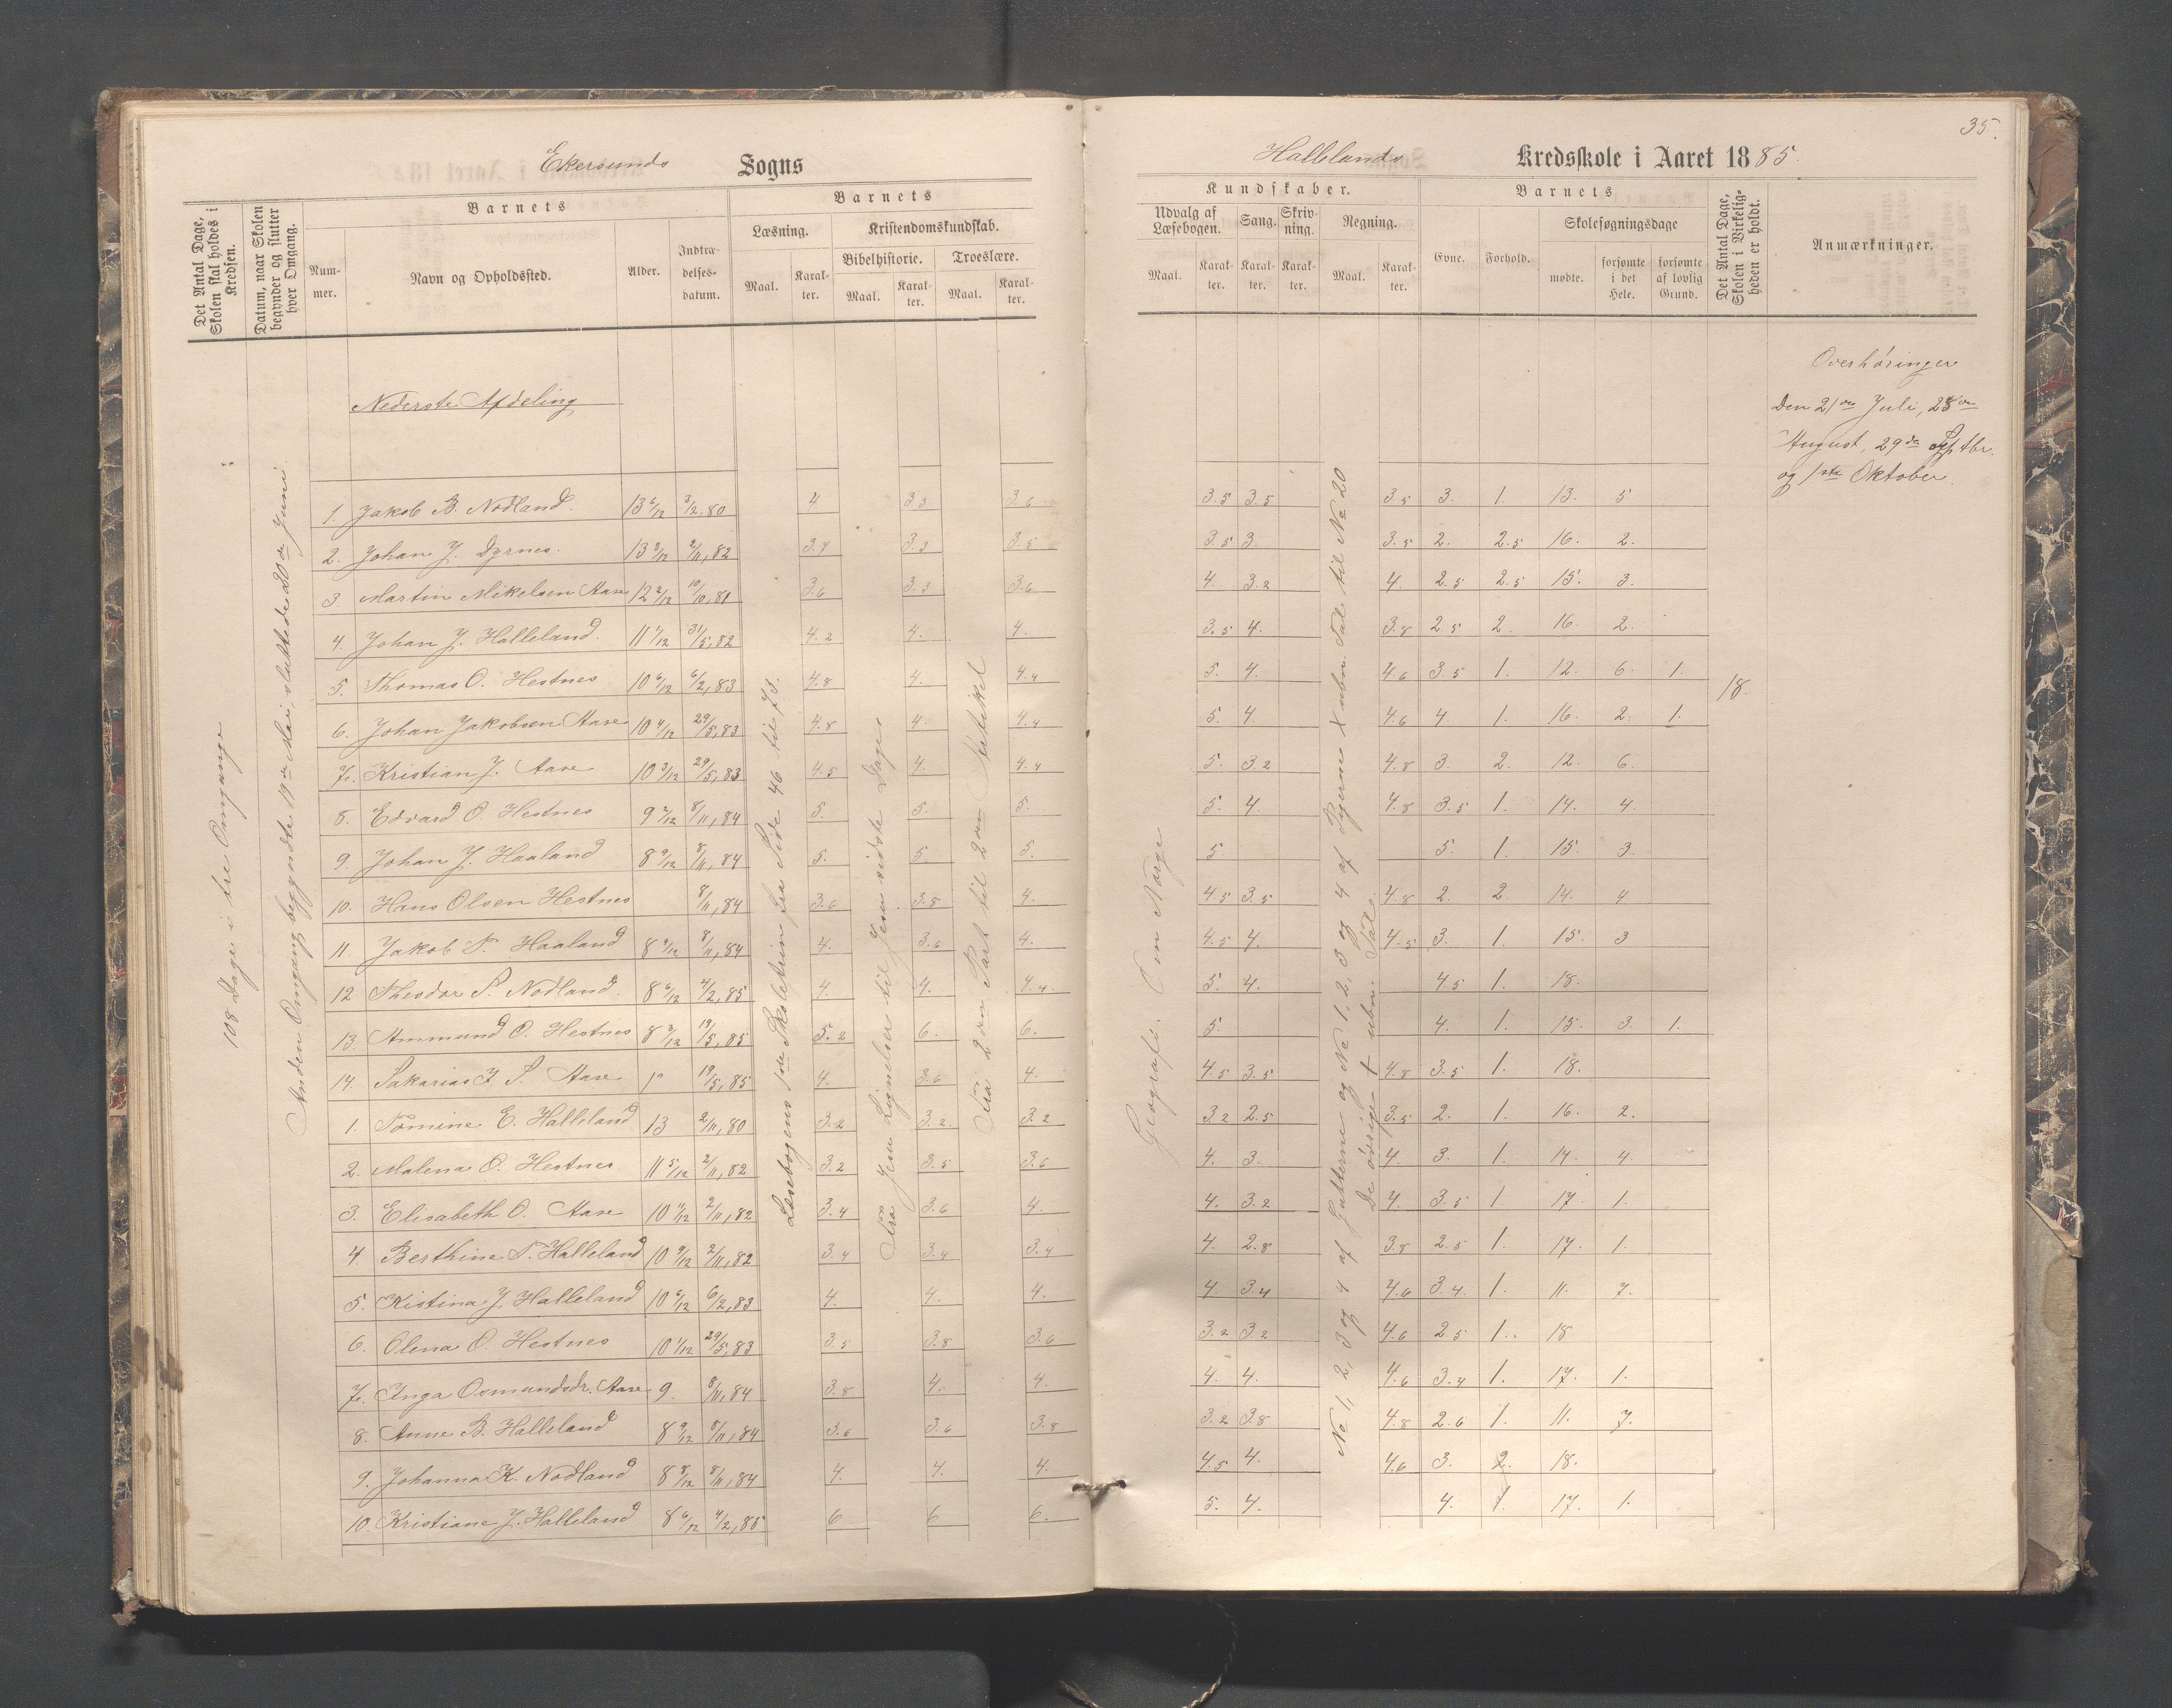 Ekersunds Sogns
Det Antal Dage, Skolen skal holdes i Kredsen.
Datum, naar Skolen begynder og slutter hver Omgang.
Barnets
Num-mer.
Navn og Opholdssted.
Alder.
Indtræ-delses-datum.
Barnets
Læsning.
Maal.
Karak-ter.
Kristendomskundskab.
Bibelhistorie.
Maal.
Karak-ter.
Troeslære.
Maal.
Karak-ter.
108 Dage i tre Omgange
Anden Omgang begyndte 19de Mai, sluttede 20de Juni
Nederste Afdeling
Læsebogens 1ste Skoletrin fra Side 46 til 73.
Fra Jesu Lignelser til Jesu sidste Dage
Fra 2den Part til 2den Artikel
1. Jakob B. Nodland. 13 6/12 3/2,80 4 3.3 3.6
2. Johan J. Dyrnes. 13 3/12 2/11,82 3.8 3.3 3.5
3. Martin Mikelsen Aase 12 2/12 10/10,81 3.6 3.3 3.6
4. Johan J. Halleland. 11 4/12 31/5,82 4.2 4. 4.
5. Thomas O. Hestnes 10 6/12 6/2,83 4.8 4. 4.4
6. Johan Jakobsen Aase 10 4/12 29/5,83 4.8 4. 4.4
7. Kristian J. Aase 10 3/12 29/5,83 4.5 4. 4.4
8. Edvard O. Hestnes 9 2/12 8/11,84 5. 5. 5.
9. Johan J. Haaland 8 9/12 8/11,84 5. 5. 5.
10. Hans Olsen Hestnes 8/11,84 3.6 3.8 4.
11. Jakob N. Haaland 8 9/12 8/11,84 4. 3.6 4.
12 Theodor S. Nodland. 8 6/12 4/2,85 4. 4. 4.4.
13. Ammund O. Hestnes 8 3/12 19/5,85 5.2 6. 6.
14. Sakarias J. S. Aase 19/5,85 4. 3.6 4.
1. Tomine E. Halleland 13 2/11,80 3.2 3.2. 3.2
2. Malena O. Hestnes 11 5/12 2/11,82 3.2 3.5 3.6
3. Elisabeth O. Aase 10 11/12 2/11,82 3.4 3.6 4.
4. Berthine T. Halleland 10 9/12 2/11,82 3.4 3.4 3.4
5. Kistina J. Halleland 10 6/12 6/2,83 4. 4. 4.
6. Olena O. Hestnes 10 1/12 29/5,83 3.5 3.8 3.6
7. Inga Osmundsdr. Aase 9. 8/11,84 3.8 4. 4.
8. Anne B. Halleland 8 9/12 8/11,84 3.6 3.6 3.8
9. Johanna K. Nodland 8 8/12 8/11,84 4. 4. 4.
10. Kristiane J. Halleland 8 6/12 4/2,85 6 6 6.
35.
Hallelands Kredsskole i Aaret 1885.
Kundskaber.
Udvalg af Læsebogen.
Maal.
Karak-ter.
Sang.
Karak-ter.
Skriv-ning.
Karak-ter.
Regning.
Maal.
Karak-ter.
Barnets
Evne.
Forhold.
Skolesøgningsdage
mødte.
forsømte i det Hele.
forsømte af lovlig Grund.
Det Antal Dage, Skolen i Virkelig-heden er holdt.
Anmærkninger.
Overhøringer
Den 21de Juli, 28de
August, 29de Septbr.
og 1ste Oktober.
Geografi. Om Norge
No 1, 2, 3 og 4 af Gutterne og No 1, 2, 3 og 4 af Pigerne X ubn. Tal til No 20
De øvrige + ubn. Tal.
3.5 3.5 3.5 3. 1. 13. 5
3.5 3. 3.5 2. 2.5 16. 2.
4. 3.2 4. 2.5 2.5 15. 3.
3.5 4. 3.8 2.5 2. 16. 2.
5. 4. 4.6 3.5 1. 12. 6. 1.
18.
5. 4. 4.6 4. 1. 16. 2. 1.
5. 3.2 4.8 3. 2. 12. 6.
5. 4. 4.8 3.5 1. 14. 4.
5. 5. 1. 15. 3.
4.5 3.5 4.8 2. 2. 14. 4
4.5 4. 4.5 3. 1. 15. 3
5. 4. 4.5 1. 18.
5. 4. 1. 15. 3. 1.
4.5 3.5 4.8 3.5 1. 18.
3.2 2.5 3.5 2. 1. 16. 2.
4. 3. 4. 3. 1. 14. 4.
4. 3.2 4. 3.5 1. 17. 1.
4. 2.8 3.8 2.5 1. 17. 1.
4. 3.4 4.6 3.4. 1. 11. 7.
3.2 3.2 4.6 2.5 1. 18
4. 4. 4.6 3.4 1. 17. 1.
3.2 3.8 4.8 2.6 1. 11. 7.
4.5 4. 4.6 3. 2. 18.
5. 4. 4. 1. 17. 1.